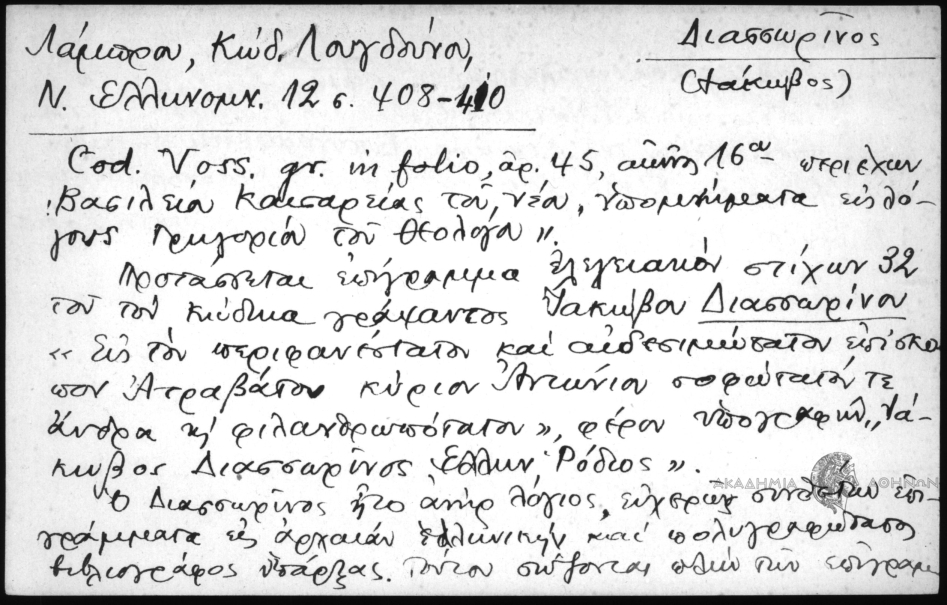 Διασσωρῖνος
(Ἰάκωβος)
Λάμπρου, Κώδ. Λουγδούνου,
Ν. Ελληνομν. 12 σ. 408-410
Cod. Voss. gr. in folio, ἀρ. 45, αἰῶνος 16ου περιέχων
"Βασιλείου Καισαρείας τοῦ νέου, ὑπομνήματα εἰς λό-
γους Γρηγορίου τοῦ Θεολόγου".
Προτάσσεται ἐπίγραμμα ἐλεγειακὸν στίχων 32
τοῦ τὸν κώδικα γράψαντος Ἰακώβου Διασσωρίνου
« Εἰς τὸν περιφανέστατον καὶ αἰδεσιμώτατον ἐπίσκο-
πον Ἀτραβάτου κύριον Ἀντώνιον σοφώτατόν τε
ἄνδρα κ φιλανθρωπότατον», φέρον ὑπογραφὴν "Ἰά-
κωβος Διασσωρῖνος Ἕλλην Ῥόδιος".
Ὁ Διασσωρῖνος ἦτο ἀνὴρ λόγιος, εὐχερῶς συνθέτων ἐπι-
γράμματα εἰς ἀρχαίαν ἑλληνικὴν καὶ πολυγραφώτατος
βιβλιογράφος ὑπάρξας. Τούτου σώζονται πλὴν τῶν ἐπιγραμ
ΑΚΑΔΗΜΙΑ ΑΘΗΝΩΝ